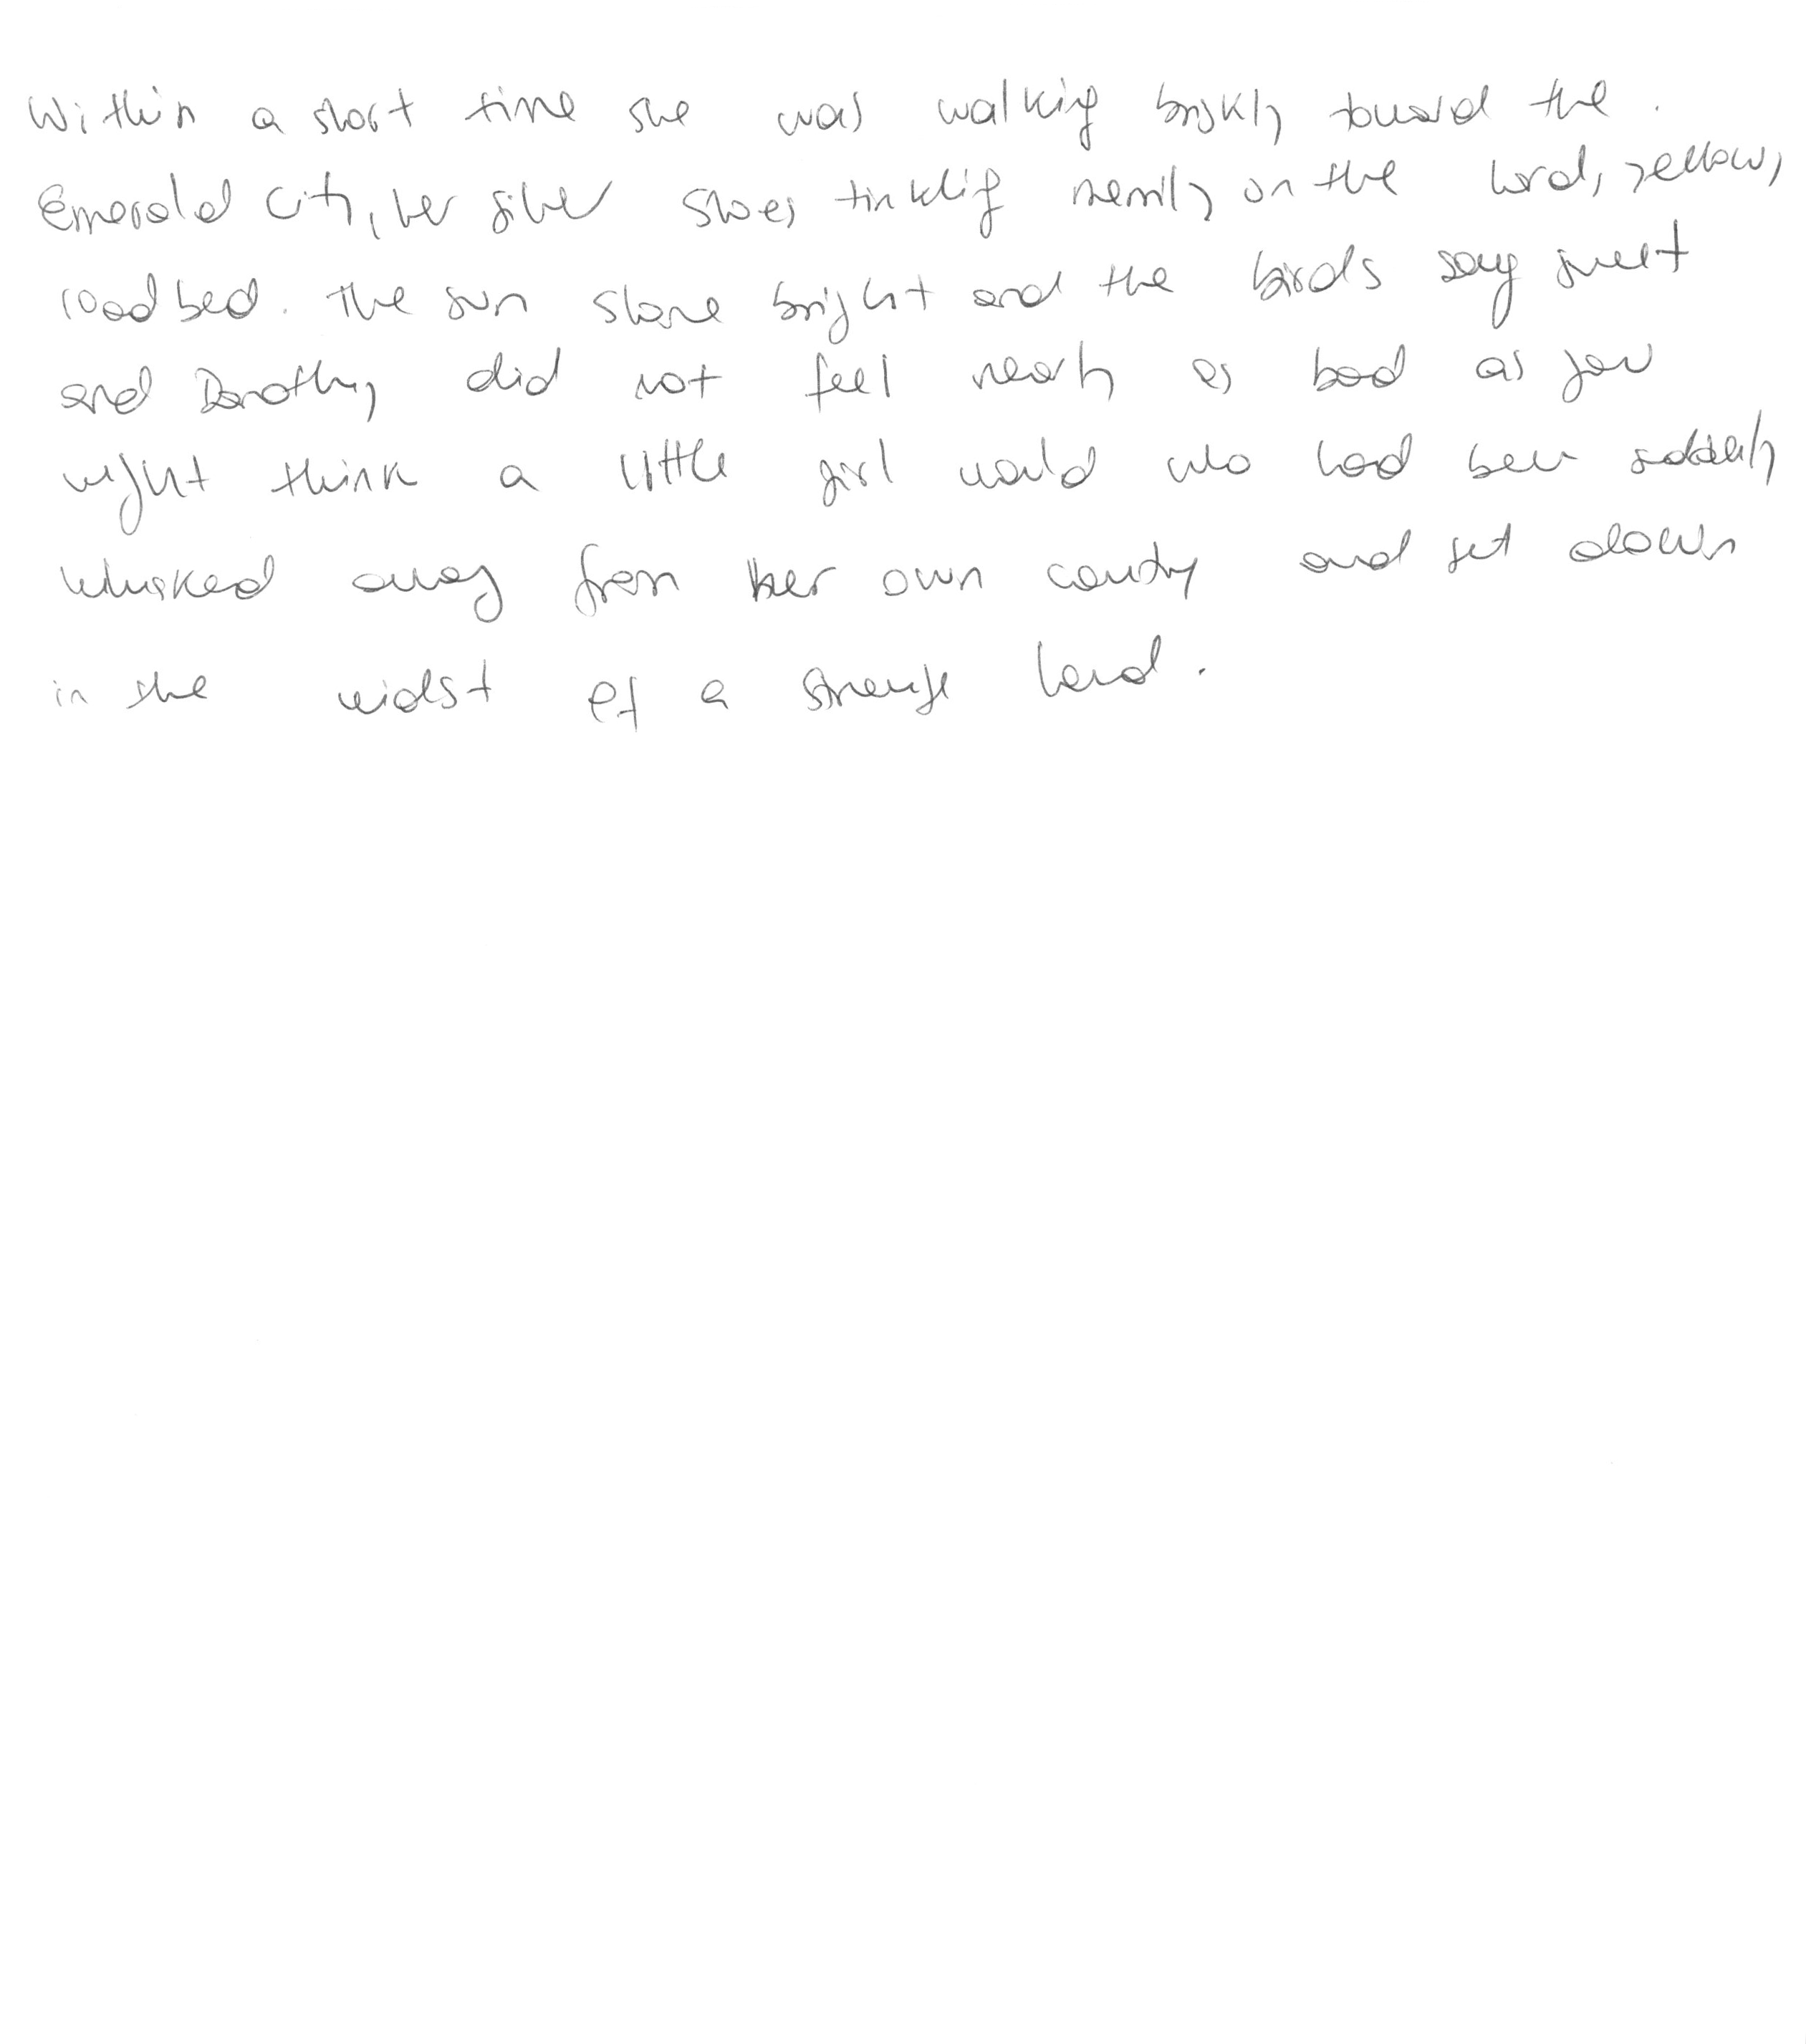 Within a short time she was walking briskly toward the
Emerald City, her silver shoes tinkling merrily on the hard, yellow,
roadbed. The sun shone bright and the birds sang sweet
and Dorothy did not feel nearly as bad as you
might think a little girl would who had been suddenly
whisked away from her own country and set down
in the midst of a strange land.